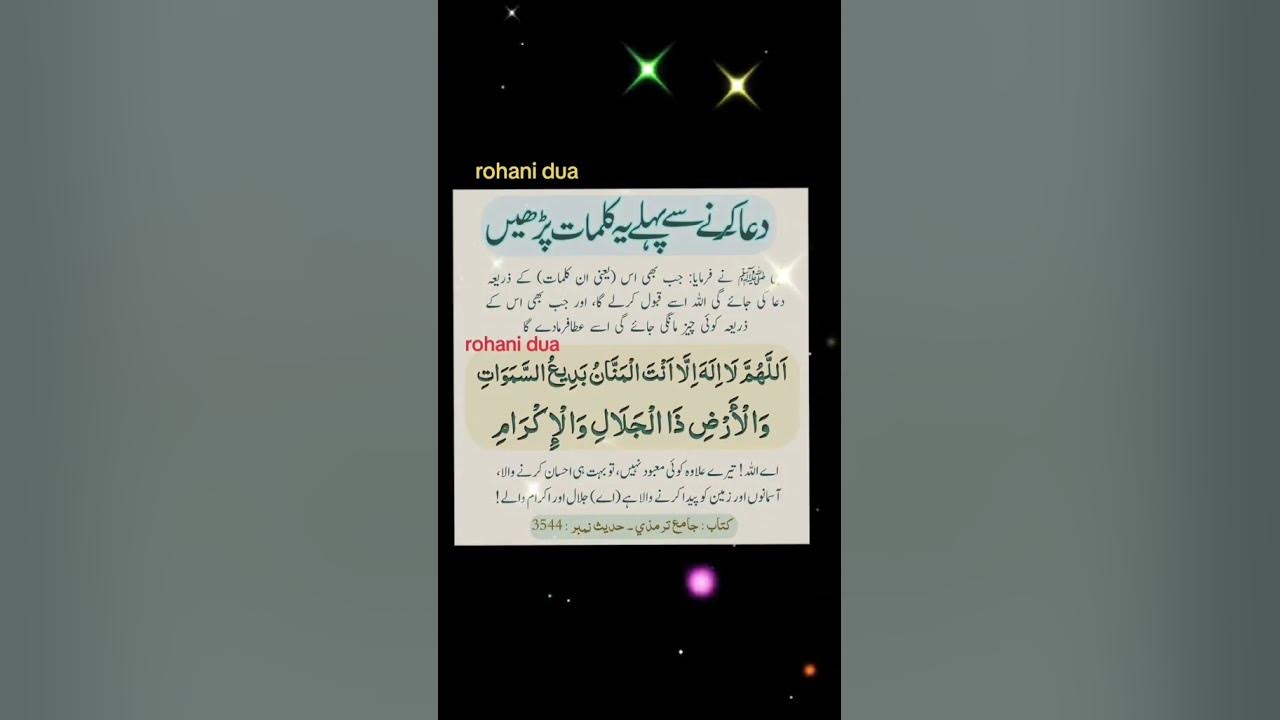 rohani dua
دعا کرنے سے پہلے یہ کلمات پڑھیں
ﷺ نے فرمایا: جب بھی اس (یعنی ان کلمات) کے ذریعہ
دعا کی جائے گی اللہ اسے قبول کرلے گا، اور جب بھی اس کے
ذریعہ کوئی چیز مانگی جائے گی اسے عطا فرمادے گا
rohani dua
اَللَّهُمَّ لَا اِلَهَ اِلَّا اَنْتَ الْمَنَّانُ بَدِيعُ السَّمَوَاتِ
وَالْأَرْضِ ذَا الْجَلَالِ وَالْإِكْرَامِ
اے اللہ! تیرے علاوہ کوئی معبود نہیں، تو بہت ہی احسان کرنے والا،
آسمانوں اور زمین کو پیدا کرنے والا ہے (اے) جلال اور اکرام والے!
کتاب : جامع ترمذي ۔ حديث نمبر : 3544